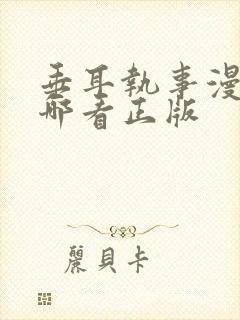 垂耳執事漫
哪看正版
麗貝卡